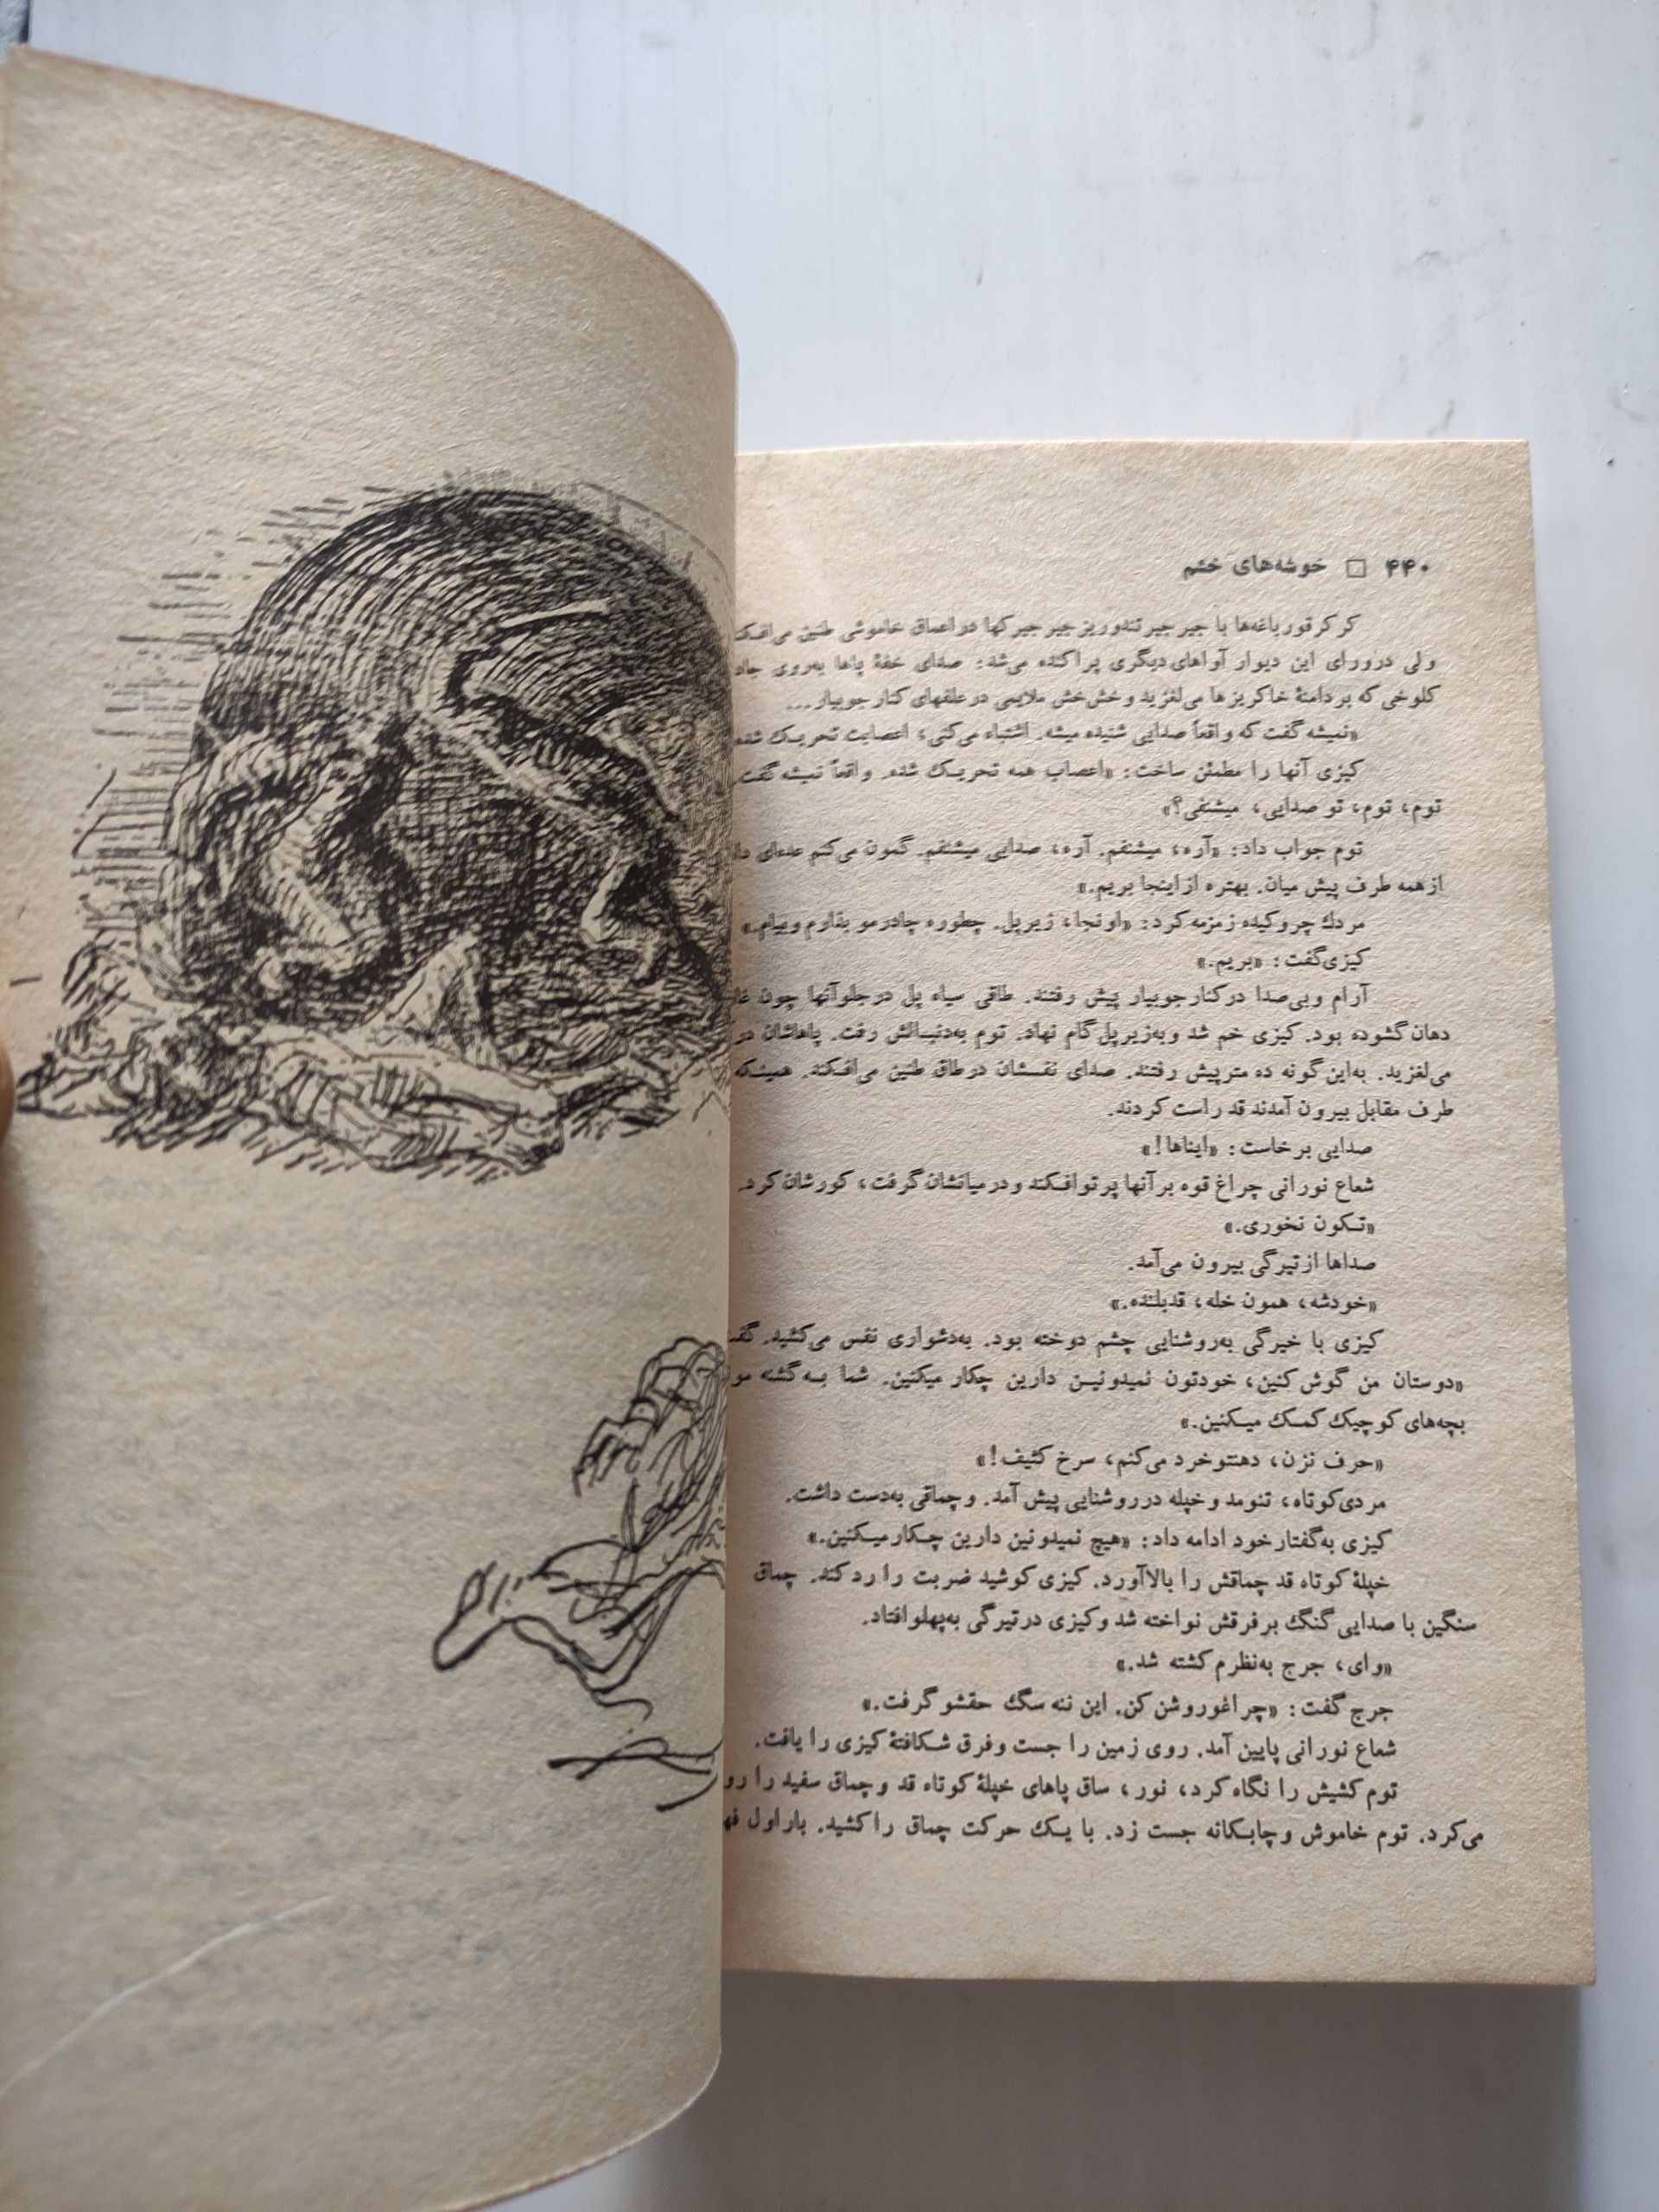 ۴۴۰ □ خوشه‌های خشم
کرکر قورباغه‌ها با جیرجیر تندوریز جیرجیرکها در اعماق خاموشی طنین می‌افکند
ولی درورای این دیوار آواهای دیگری پراکنده می‌شد: صدای خفهٔ پاها به‌روی
کلوخی که بر دامنهٔ خاکریزها می‌لغزید و خش‌خش ملایمی در علفهای کنار جویبار...
«نمیشه گفت که واقعاً صدایی شنیده میشه. اشتباه می‌کنی؛ اعصابت تحریک شده
کیزی آنها را مطمئن ساخت: «اعصاب همه تحریک شده. واقعاً نمیشه گفت.
توم، توم، تو صدایی، میشنفی؟»
توم جواب داد: «آره، میشنفم. آره، صدایی میشنفم. گمون می‌کنم عده‌ای
از همه طرف پیش میان. بهتره از اینجا بریم.»
مردك چروکیده زمزمه کرد: «اونجا، زیر پل. چطوره چادرمو بذارم وبیام.»
کیزی‌گفت: «بریم.»
آرام وبی‌صدا در کنار جویبار پیش رفتند. طاقی سیاه پل در جلو آنها چون
دهان گشوده بود. کیزی خم شد و به‌زیر پل گام نهاد. توم به‌دنبالش رفت. پاهاشان در
می‌لغزید. به‌این گونه ده متر پیش رفتند. صدای نفسشان در طاق طنین می‌افکند. همینکه
طرف مقابل بیرون آمدند قد راست کردند.
صدایی برخاست: «ایناها!»
شعاع نورانی چراغ قوه بر آنها پرتو افکند و در میانشان گرفت، کورشان کرد.
«تکون نخوری.»
صداها از تیرگی بیرون می‌آمد.
«خودشه، همون خله، قدبلنده.»
کیزی با خیرگی به‌روشنایی چشم دوخته بود. به‌دشواری نفس می‌کشید.
«دوستان من گوش کنین، خودتون نمیدونین دارین چکار میکنین. شما به گشنه
بچه‌های کوچیک کمک میکنین.»
«حرف نزن، دهنتو خرد می‌کنم، سرخ کثیف!»
مردی‌کوتاه، تنومند و خپله در روشنایی پیش آمد. و چماقی به‌دست داشت.
کیزی به‌گفتار خود ادامه داد: «هیچ نمیدونین دارین چکار میکنین.»
خپلهٔ کوتاه قد چماقش را بالا آورد. کیزی کوشید ضربت را رد کند. چماق
سنگین با صدایی گنگ بر فرقش نواخته شد و کیزی در تیرگی به‌پهلو افتاد.
«وای، جرج به‌نظرم کشته شد.»
جرج گفت: «چراغو روشن کن. این ننه سگ حقشو گرفت.»
شعاع نورانی پایین آمد. روی زمین را جست و فرق شکافتهٔ کیزی را یافت.
توم کشیش را نگاه کرد، نور، ساق پاهای خپلهٔ کوتاه قد و چماق سفید را
می‌کرد. توم خاموش و چابکانه جست زد. با یک حرکت چماق را کشید. بار اول